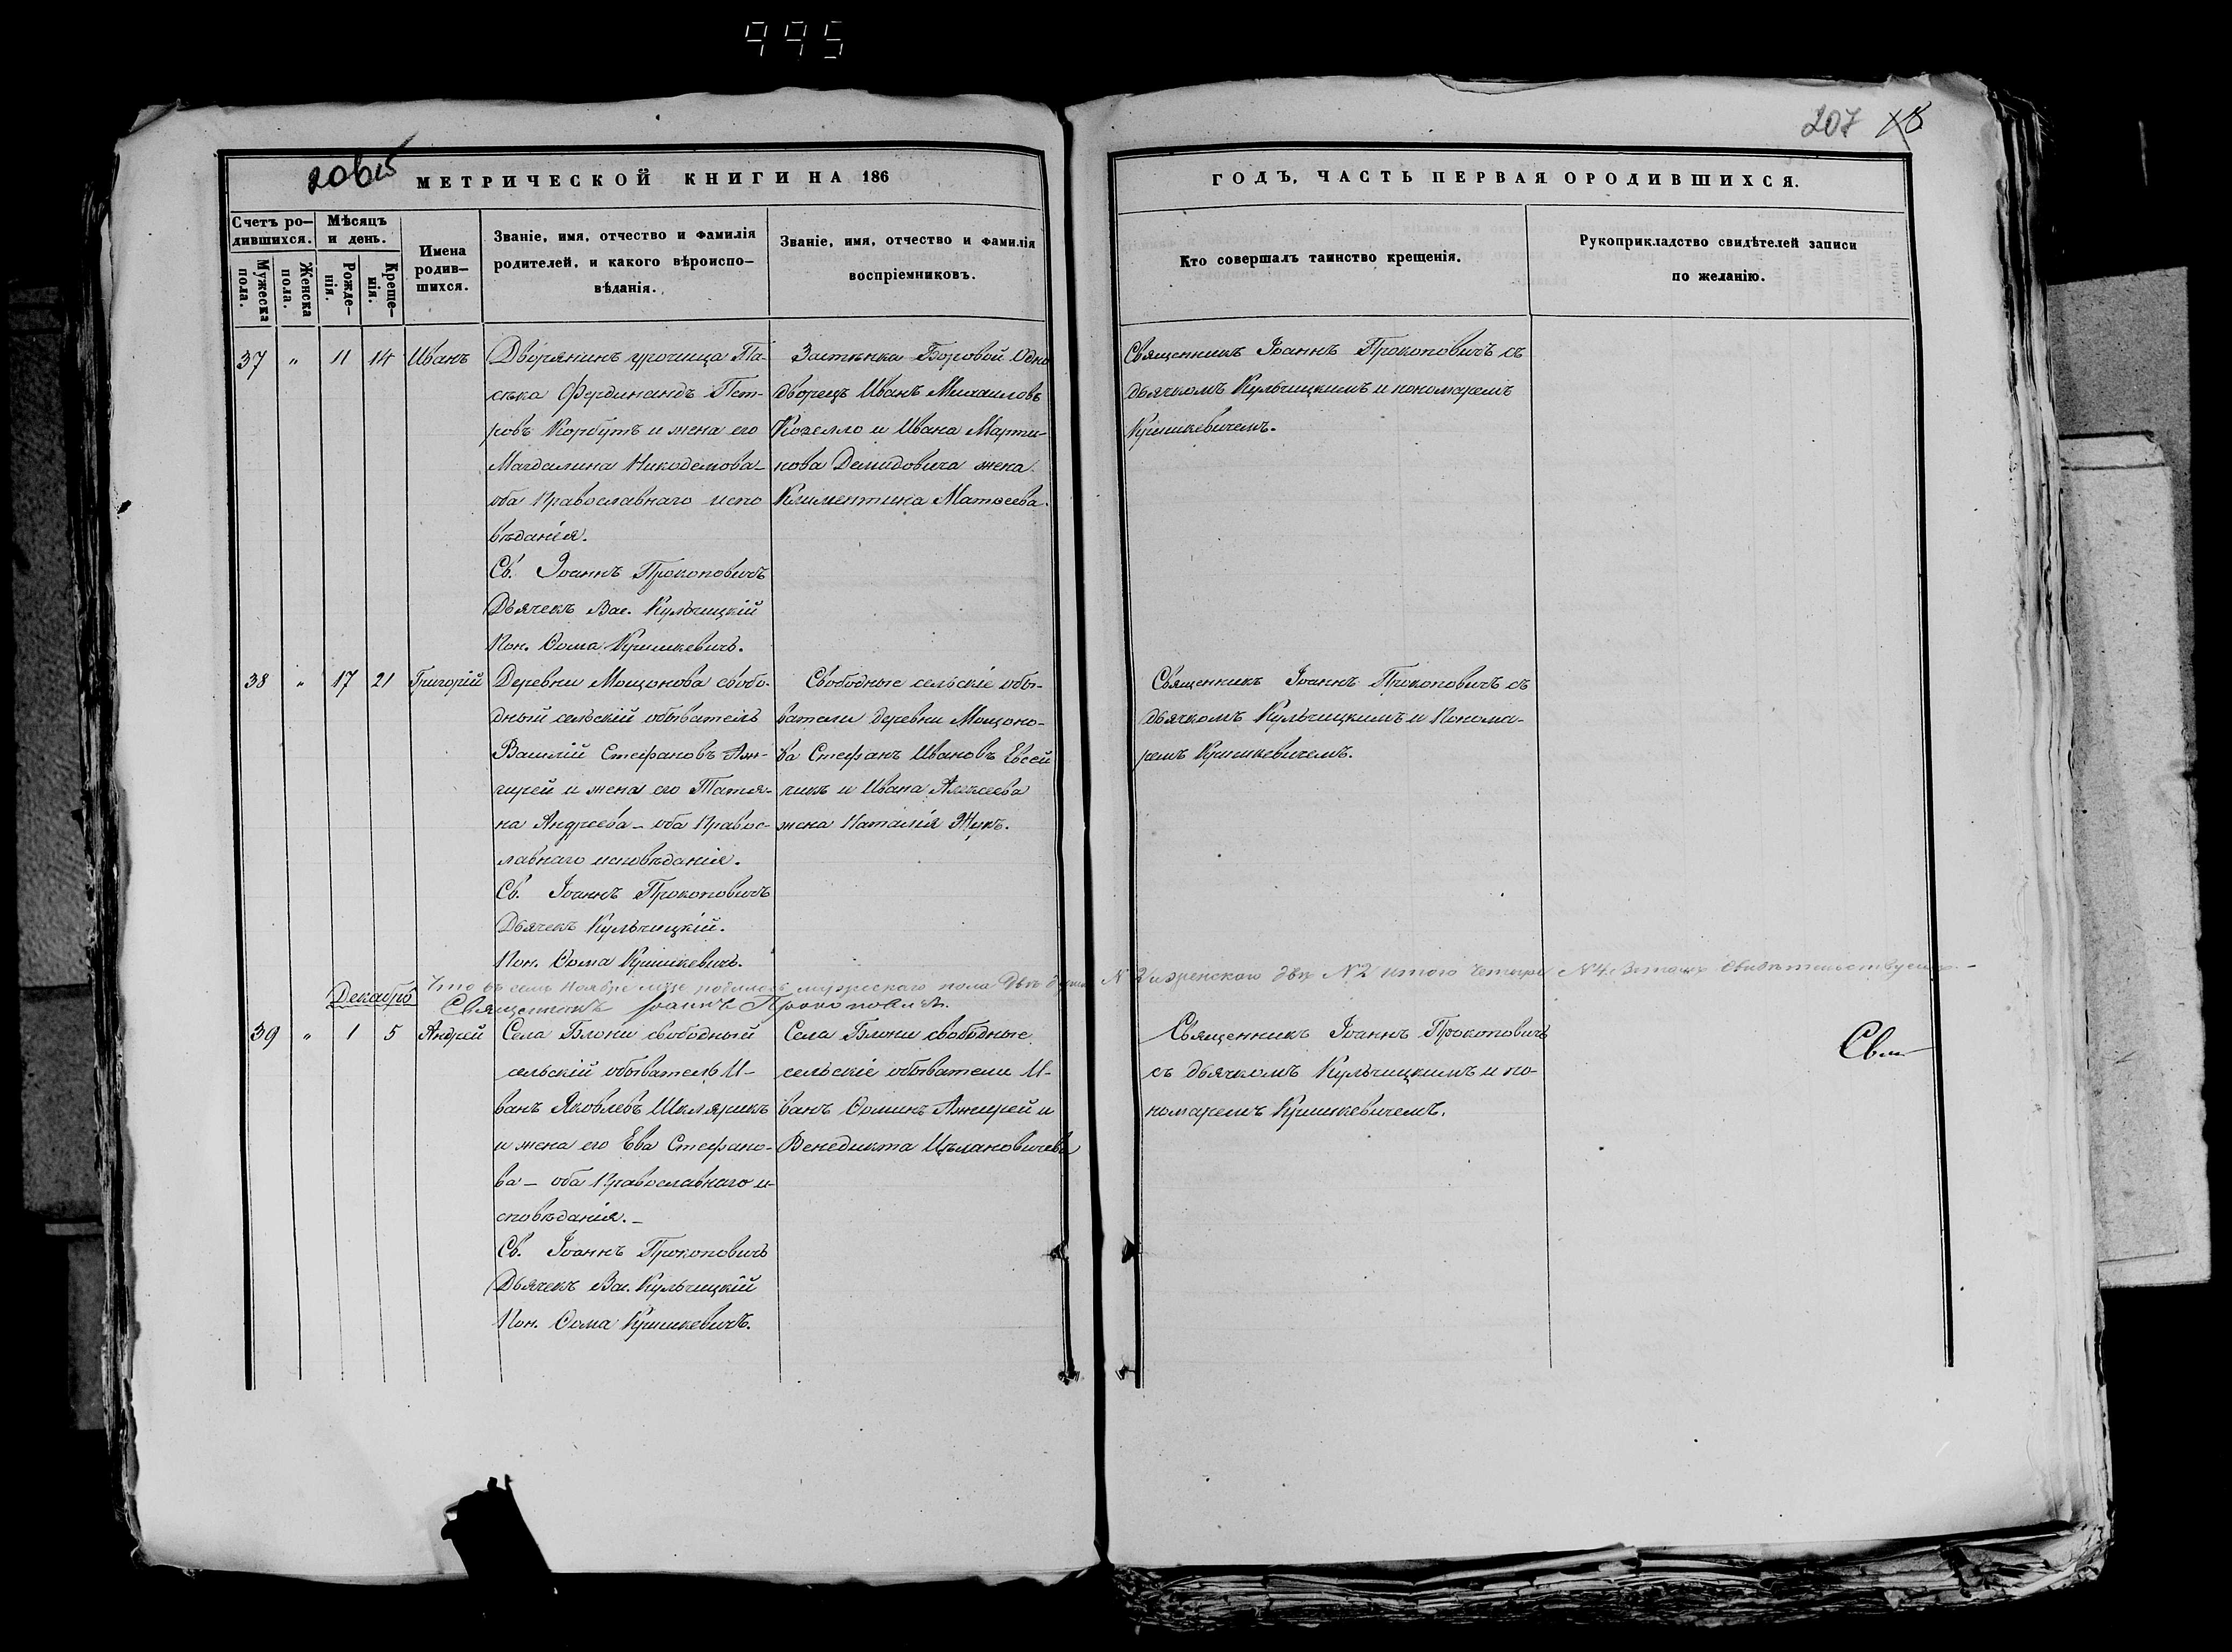 995
206об
207
МЕТРИЧЕСКОЙ КНИГИ НА 186
ГОДЪ, ЧАСТЬ ПЕРВАЯ О РОДИВШИХСЯ.
Счетъ ро-
дившихся.
Мужеска
пола.
Женска
пола.
Мѣсяцъ
и день.
Рожде-
нія.
Креще-
нія.
Имена
родив-
шихся.
Званіе, имя, отчество и фамилія
родителей, и какого вѣроиспо-
вѣданія.
Званіе, имя, отчество и фамилія
воспріемниковъ.
Кто совершалъ таинство крещенія.
Рукоприкладство свидѣтелей записи
по желанію.
37 " 11 14 Иванъ
Дворянинъ урочища Па-
сѣка Фердинандъ Пет-
ровъ Корбутъ и жена его
Магдалина Никодемова
оба Православнаго испо
вѣданія.
Св. Іоаннъ Прокоповичъ
Дьячекъ Вас. Кульчицкій
Пон. Ѳома Кришкевичъ.
Застѣнка Боровой Одно
дворецъ Иванъ Михаиловъ
Козелло и Ивана Марти-
нова Демидовича жена
Климентина Матѳеева.
Священникъ Іоаннъ Прокоповичъ съ
дьячкомъ Кульчицкимъ и пономаремъ
Кришкевичемъ.
38 " 17 21 Григорій
Деревни Мощонова свобо-
дный сельскій обыватель
Василій Стефановъ Ан-
чирей и жена его Татья-
на Андреева - оба Правос-
лавнаго исповѣданія.
Св. Іоаннъ Прокоповичъ
Дьячекъ Кульчицкій.
Пон. Ѳома Кришкевичъ.
Свободные сельскіе обы-
ватели деревни Мощоно-
ва Стефанъ Ивановъ Евсей
чикъ и Ивана Алексеева
жена Наталія Жукъ.
Священникъ Іоаннъ Прокоповичъ съ
дьячкомъ Кульчицкимъ и Понома-
ремъ Кришкевичемъ.
Что въ семъ Ноябре м-це родилось мужескаго пола двѣ души N 2 и женскаго двѣ N 2 итого четыре N 4. Въ томъ свидѣтельствуемъ. -
Священникъ Іоаннъ Прокоповичъ.
Декабрь
39 " 1 5 Андрей
Села Блони свободный
сельскій обыватель И-
ванъ Яковлевъ Шкляришъ
и жена его Ева Стефано-
ва - оба Православнаго и-
сповѣданія. -
Св. Іоаннъ Прокоповичъ
Дьячекъ Вас. Кульчицкій
Пон. Ѳома Кришкевичъ.
Села Блони свободные
сельскіе обыватели И-
ванъ Ѳоминъ Анчирей и
Венедикта Цѣлановичева
Священникъ Іоаннъ Прокоповичъ
съ дьячкомъ Кульчицкимъ и по-
номаремъ Кришкевичемъ.